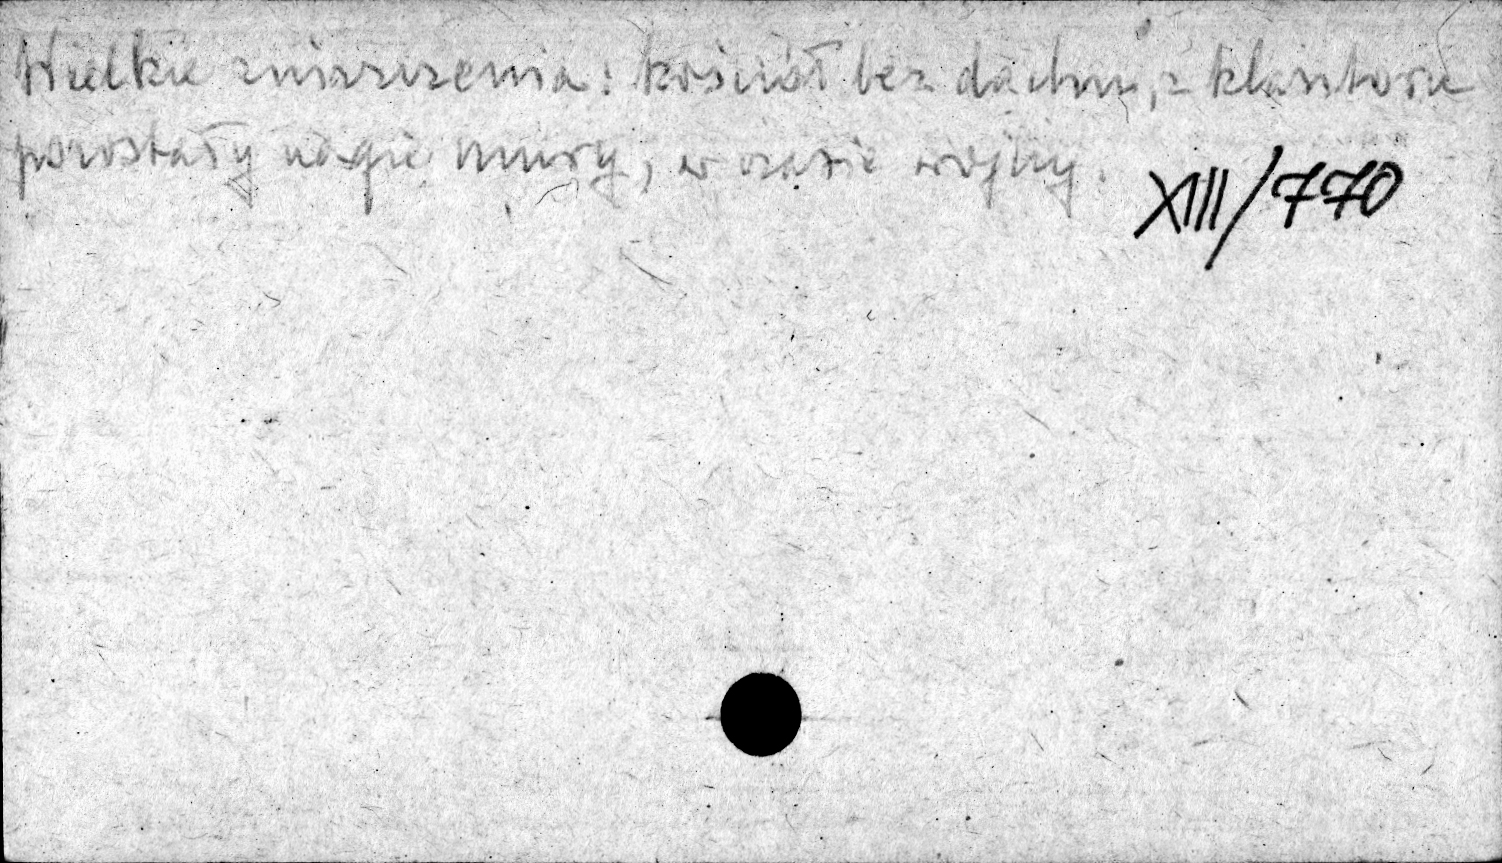 Wielkie zniszczenia: kościół bez dachu, z klasztoru
pozostały nagie mury, w czasie wojny.
XIII/770